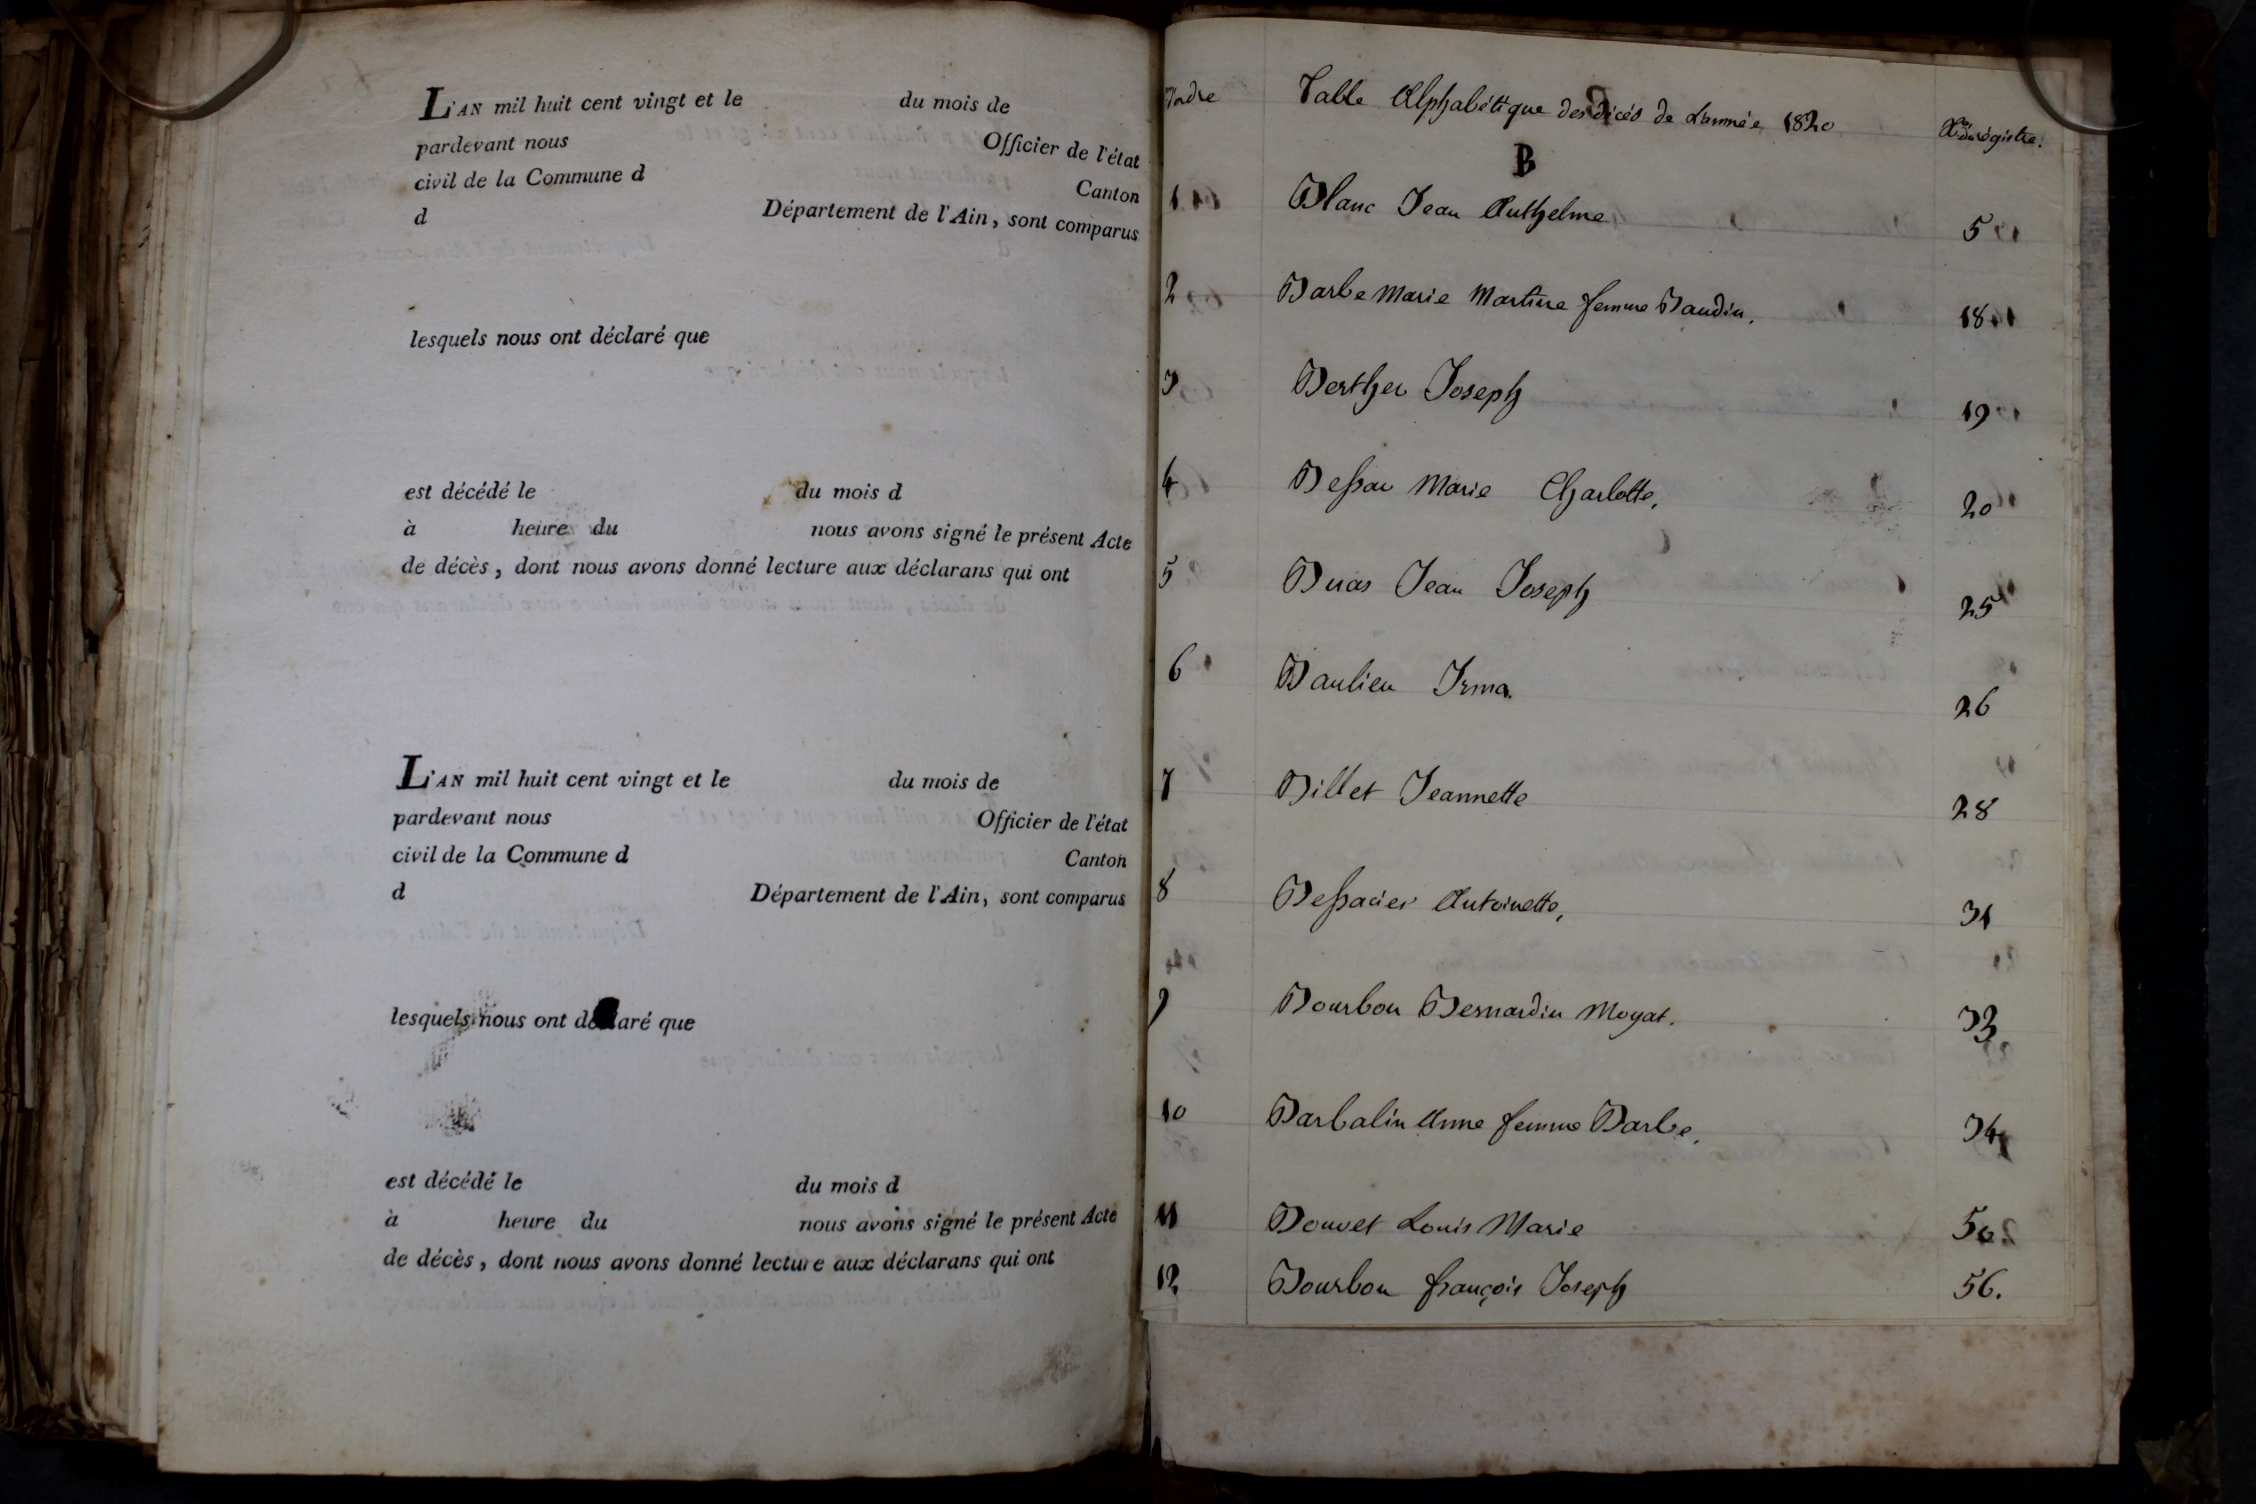 L'AN mil huit cent vingt et le du mois de
pardevant nous Officier de l'état
civil de la Commune d Canton
d Département de l'Ain, sont comparus
lesquels nous ont déclaré que
est décédé le du mois d
à heure du nous avons signé le présent Acte
de décès, dont nous avons donné lecture aux déclarans qui ont
L'AN mil huit cent vingt et le du mois de
pardevant nous Officier de l'état
civil de la Commune d Canton
d Département de l'Ain, sont comparus
lesquels nous ont déclaré que
est décédé le du mois d
à heure du nous avons signé le présent Acte
de décès, dont nous avons donné lecture aux déclarans qui ont
Table Alphabétique des décés de L'année 1820
B
1 Blanc Jean Anthelme 5
2 Barbe Marie Martine femme Baudin. 18
3 Berther Joseph 19
4 Bessac Marie Charlotte, 20
5 Buas Jean Joseph 25
6 Baulieu Irma. 26
7 Billet Jeannette 28
8 Bessacier Antoinette, 31
9 Bourbon Bernardin Moyat. 33
10 Barbalin Anne femme Barbe. 34
11 Bouvet Louis Marie
12 Bourbon françois Joseph 56.